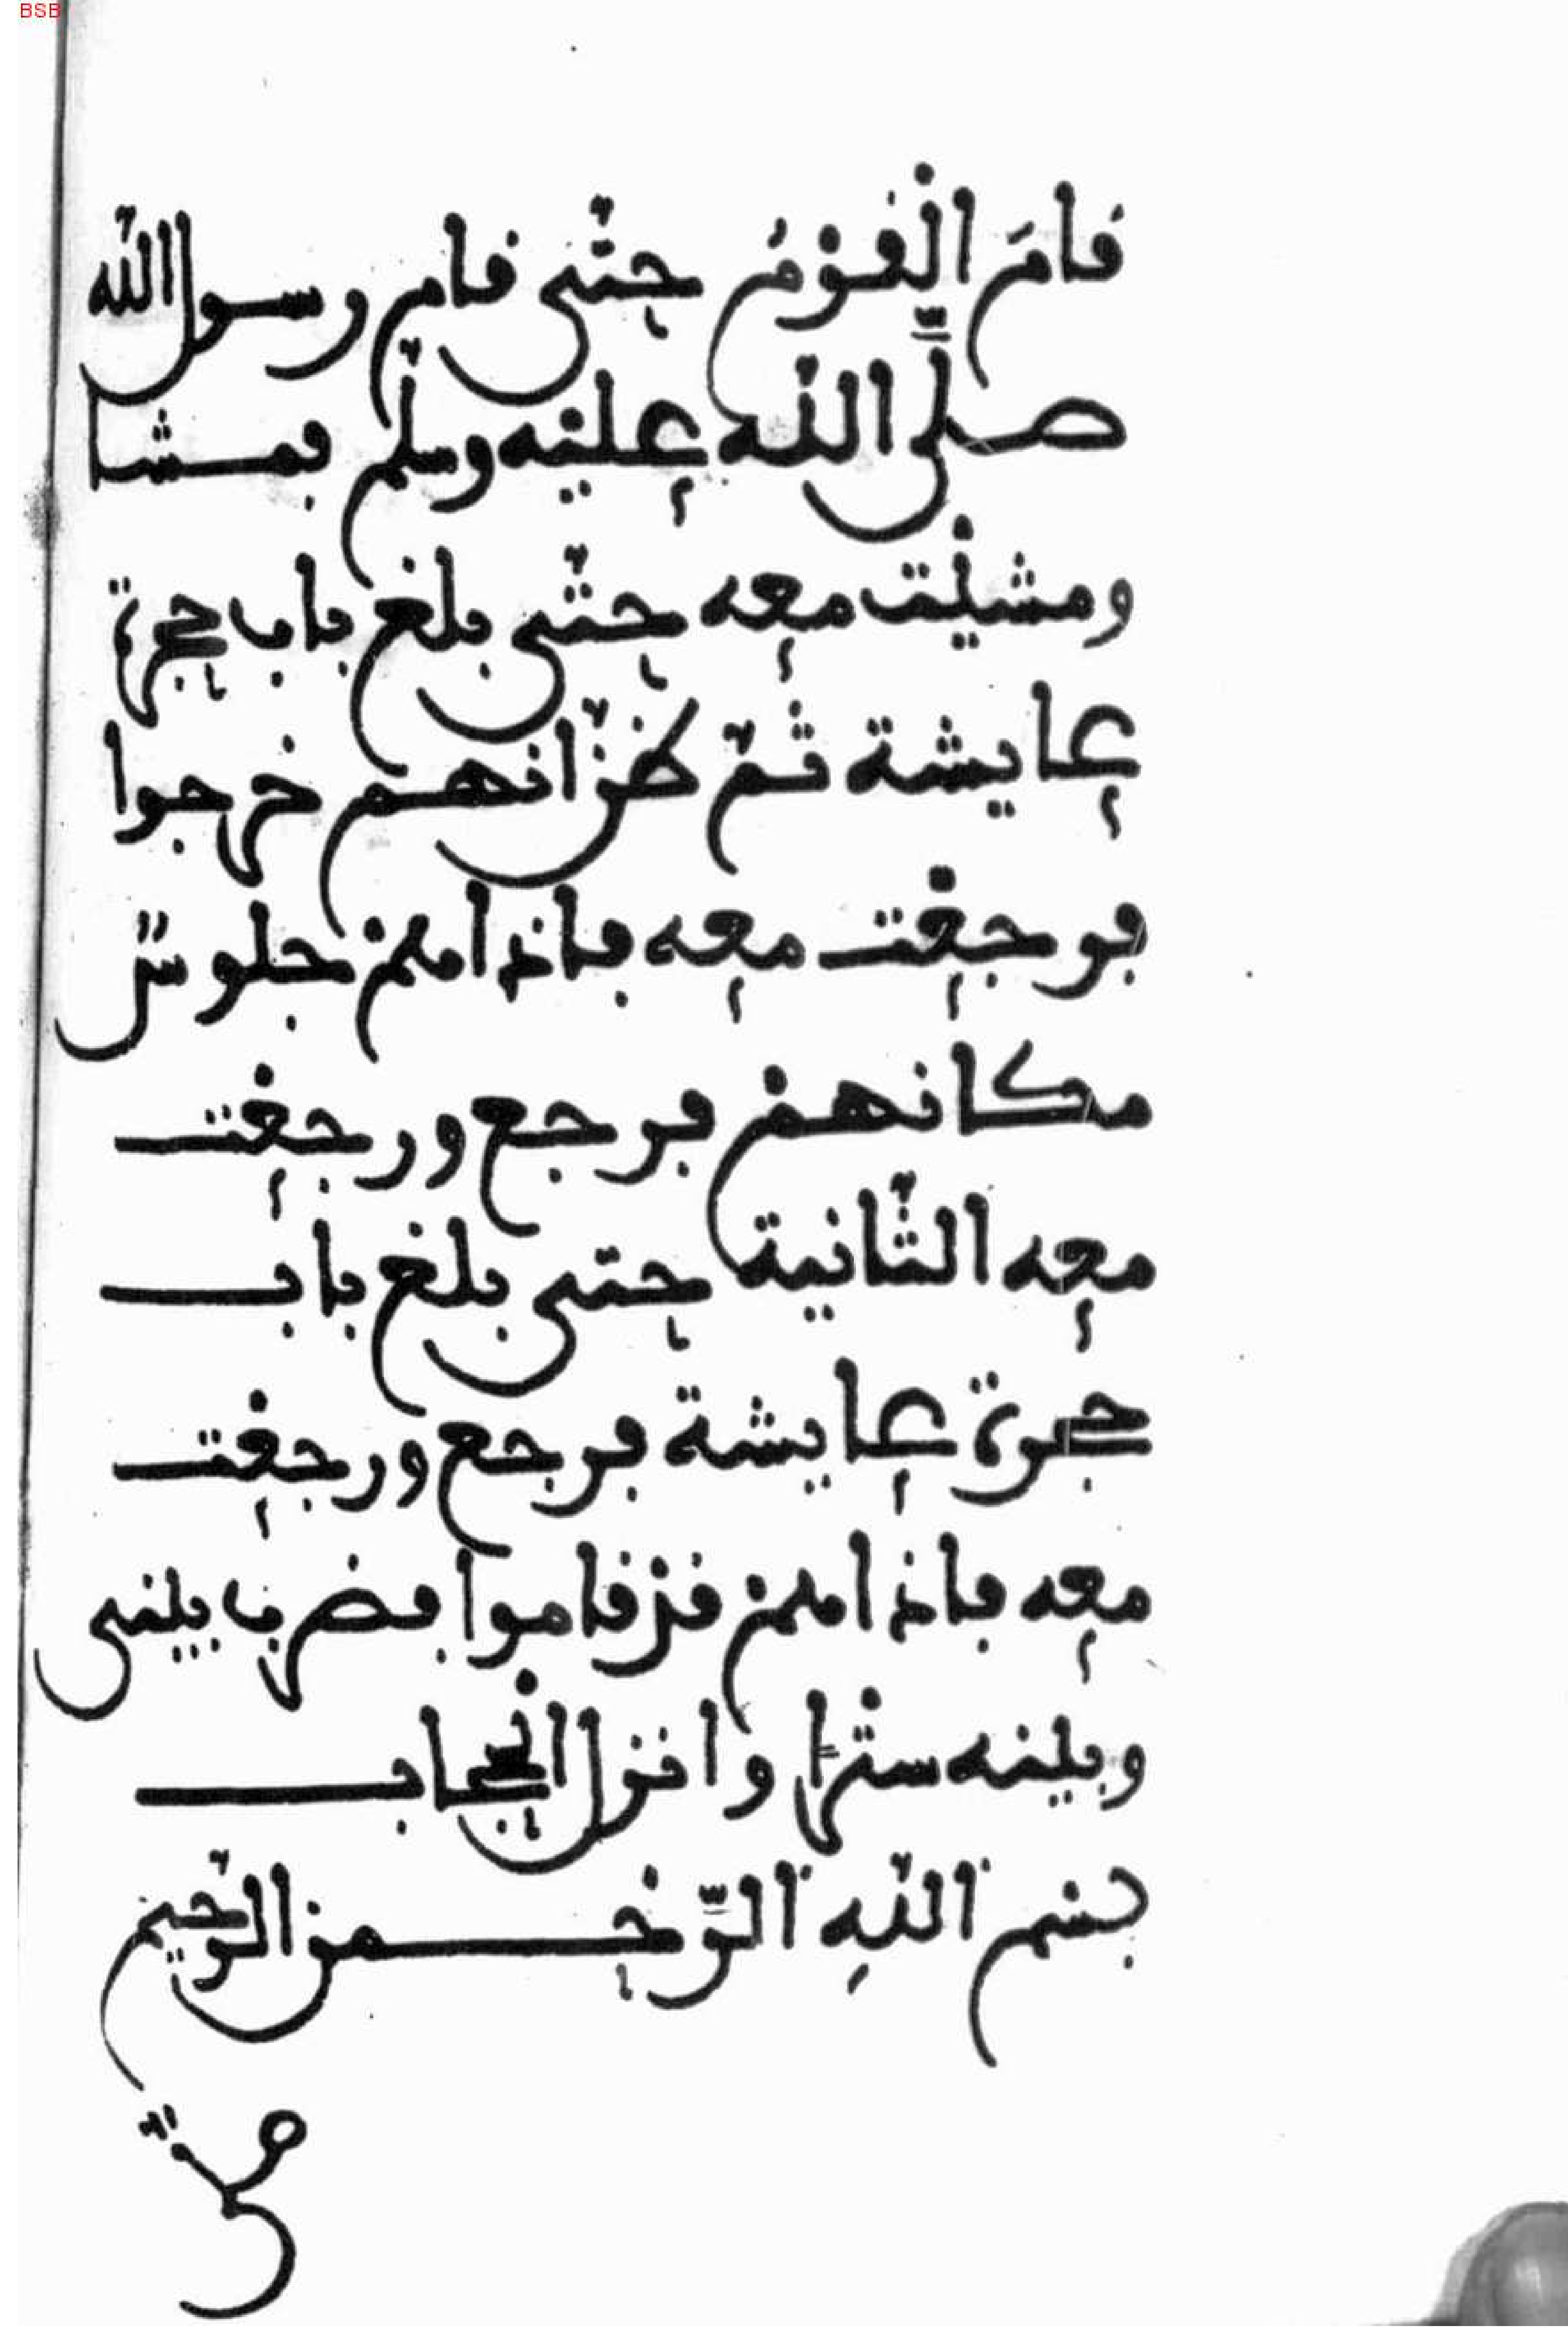 BSB
قامَ الْقَوْمُ حتّى قام رسول اللّه
صلَّى اللّه عليْه وسلّم فمشا
ومشيْت معه حتّى بلغ باب حجرة
عايشة ثمّ ظنّ انهم خرجوا
فرجعْت معه فاذا همْ جلوسٌ
مكانهمْ فرجع ورجعْت
معه الثّانية حتى بلغ باب
حجرة عايشة فرجع ورجعْت
معه فاذا همْ قدْ قاموا فضرب بينى
وبينه ستْراً وانزل الْحجاب
بسْم اللّهِ الرّحْمن الرّحيم